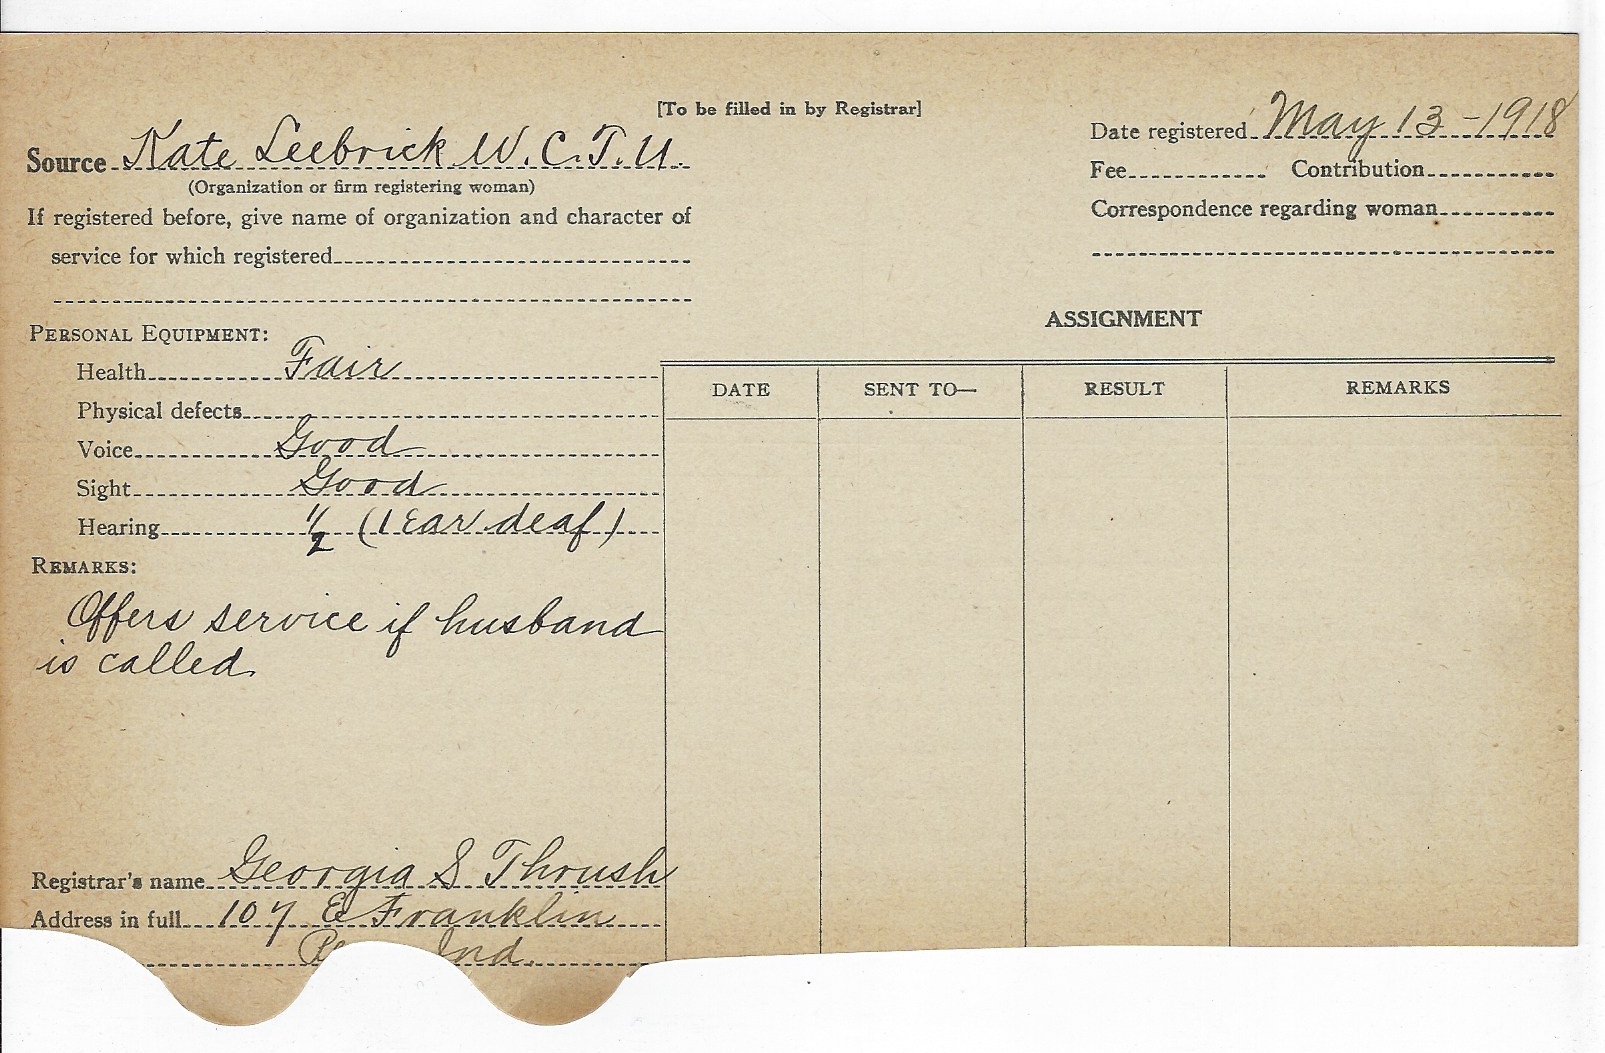 [To be filled in by Registrar]
Source Kate Leebrick W.C.T.U.
(Organization or firm registering woman)
If registered before, give name of organization and character of
service for which registered
Date registered May 13-1918
Fee Contribution
Correspondence regarding woman
PERSONAL EQUIPMENT:
Health Fair
Physical defects
Voice Good
Sight Good
Hearing 1/2 (1 Ear deaf)
REMARKS:
Offers service if husband
is called.
Registrar's name Georgia S Thrush
Address in full 107 E Franklin
Ind.
ASSIGNMENT
DATE SENT TO— RESULT REMARKS